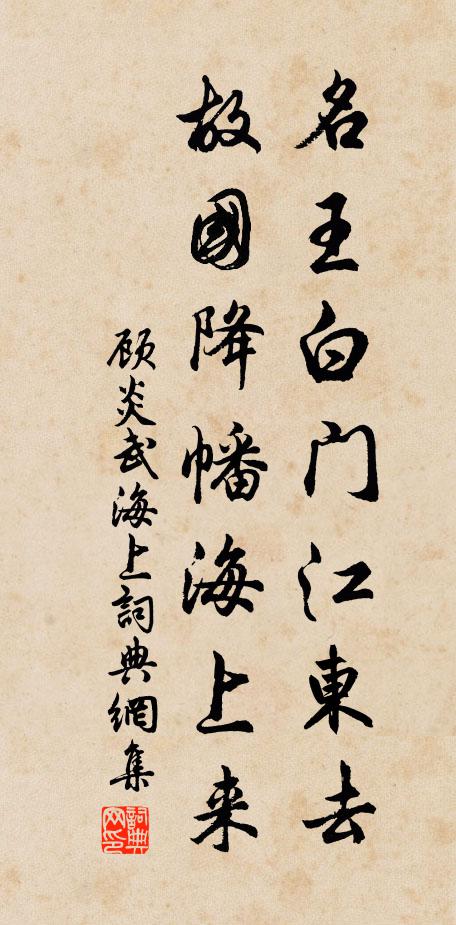 名王白门江東去
故國降幡海上来
顾炎武海上詞典網集
詞典网印